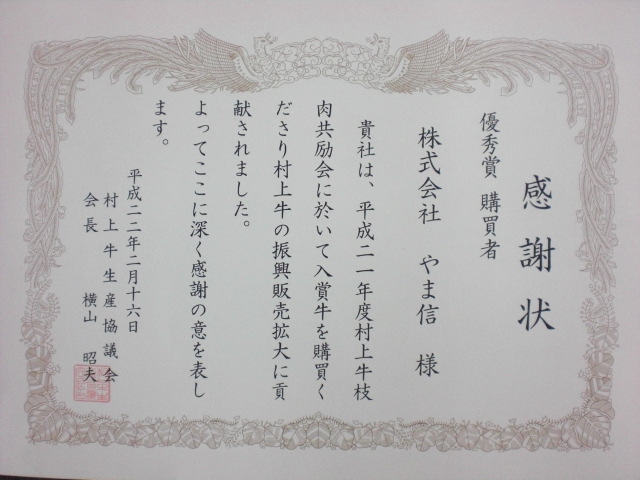 感謝状
優秀賞 購買者
株式会社 やま信 様
貴社は、平成二一年度村上牛枝
肉共励会に於いて入賞牛を購買く
ださり村上牛の振興販売拡大に貢
献されました。
よってここに深く感謝の意を表し
ます。
平成二二年二月十六日
村上牛生産協議会
会長 横山 昭夫